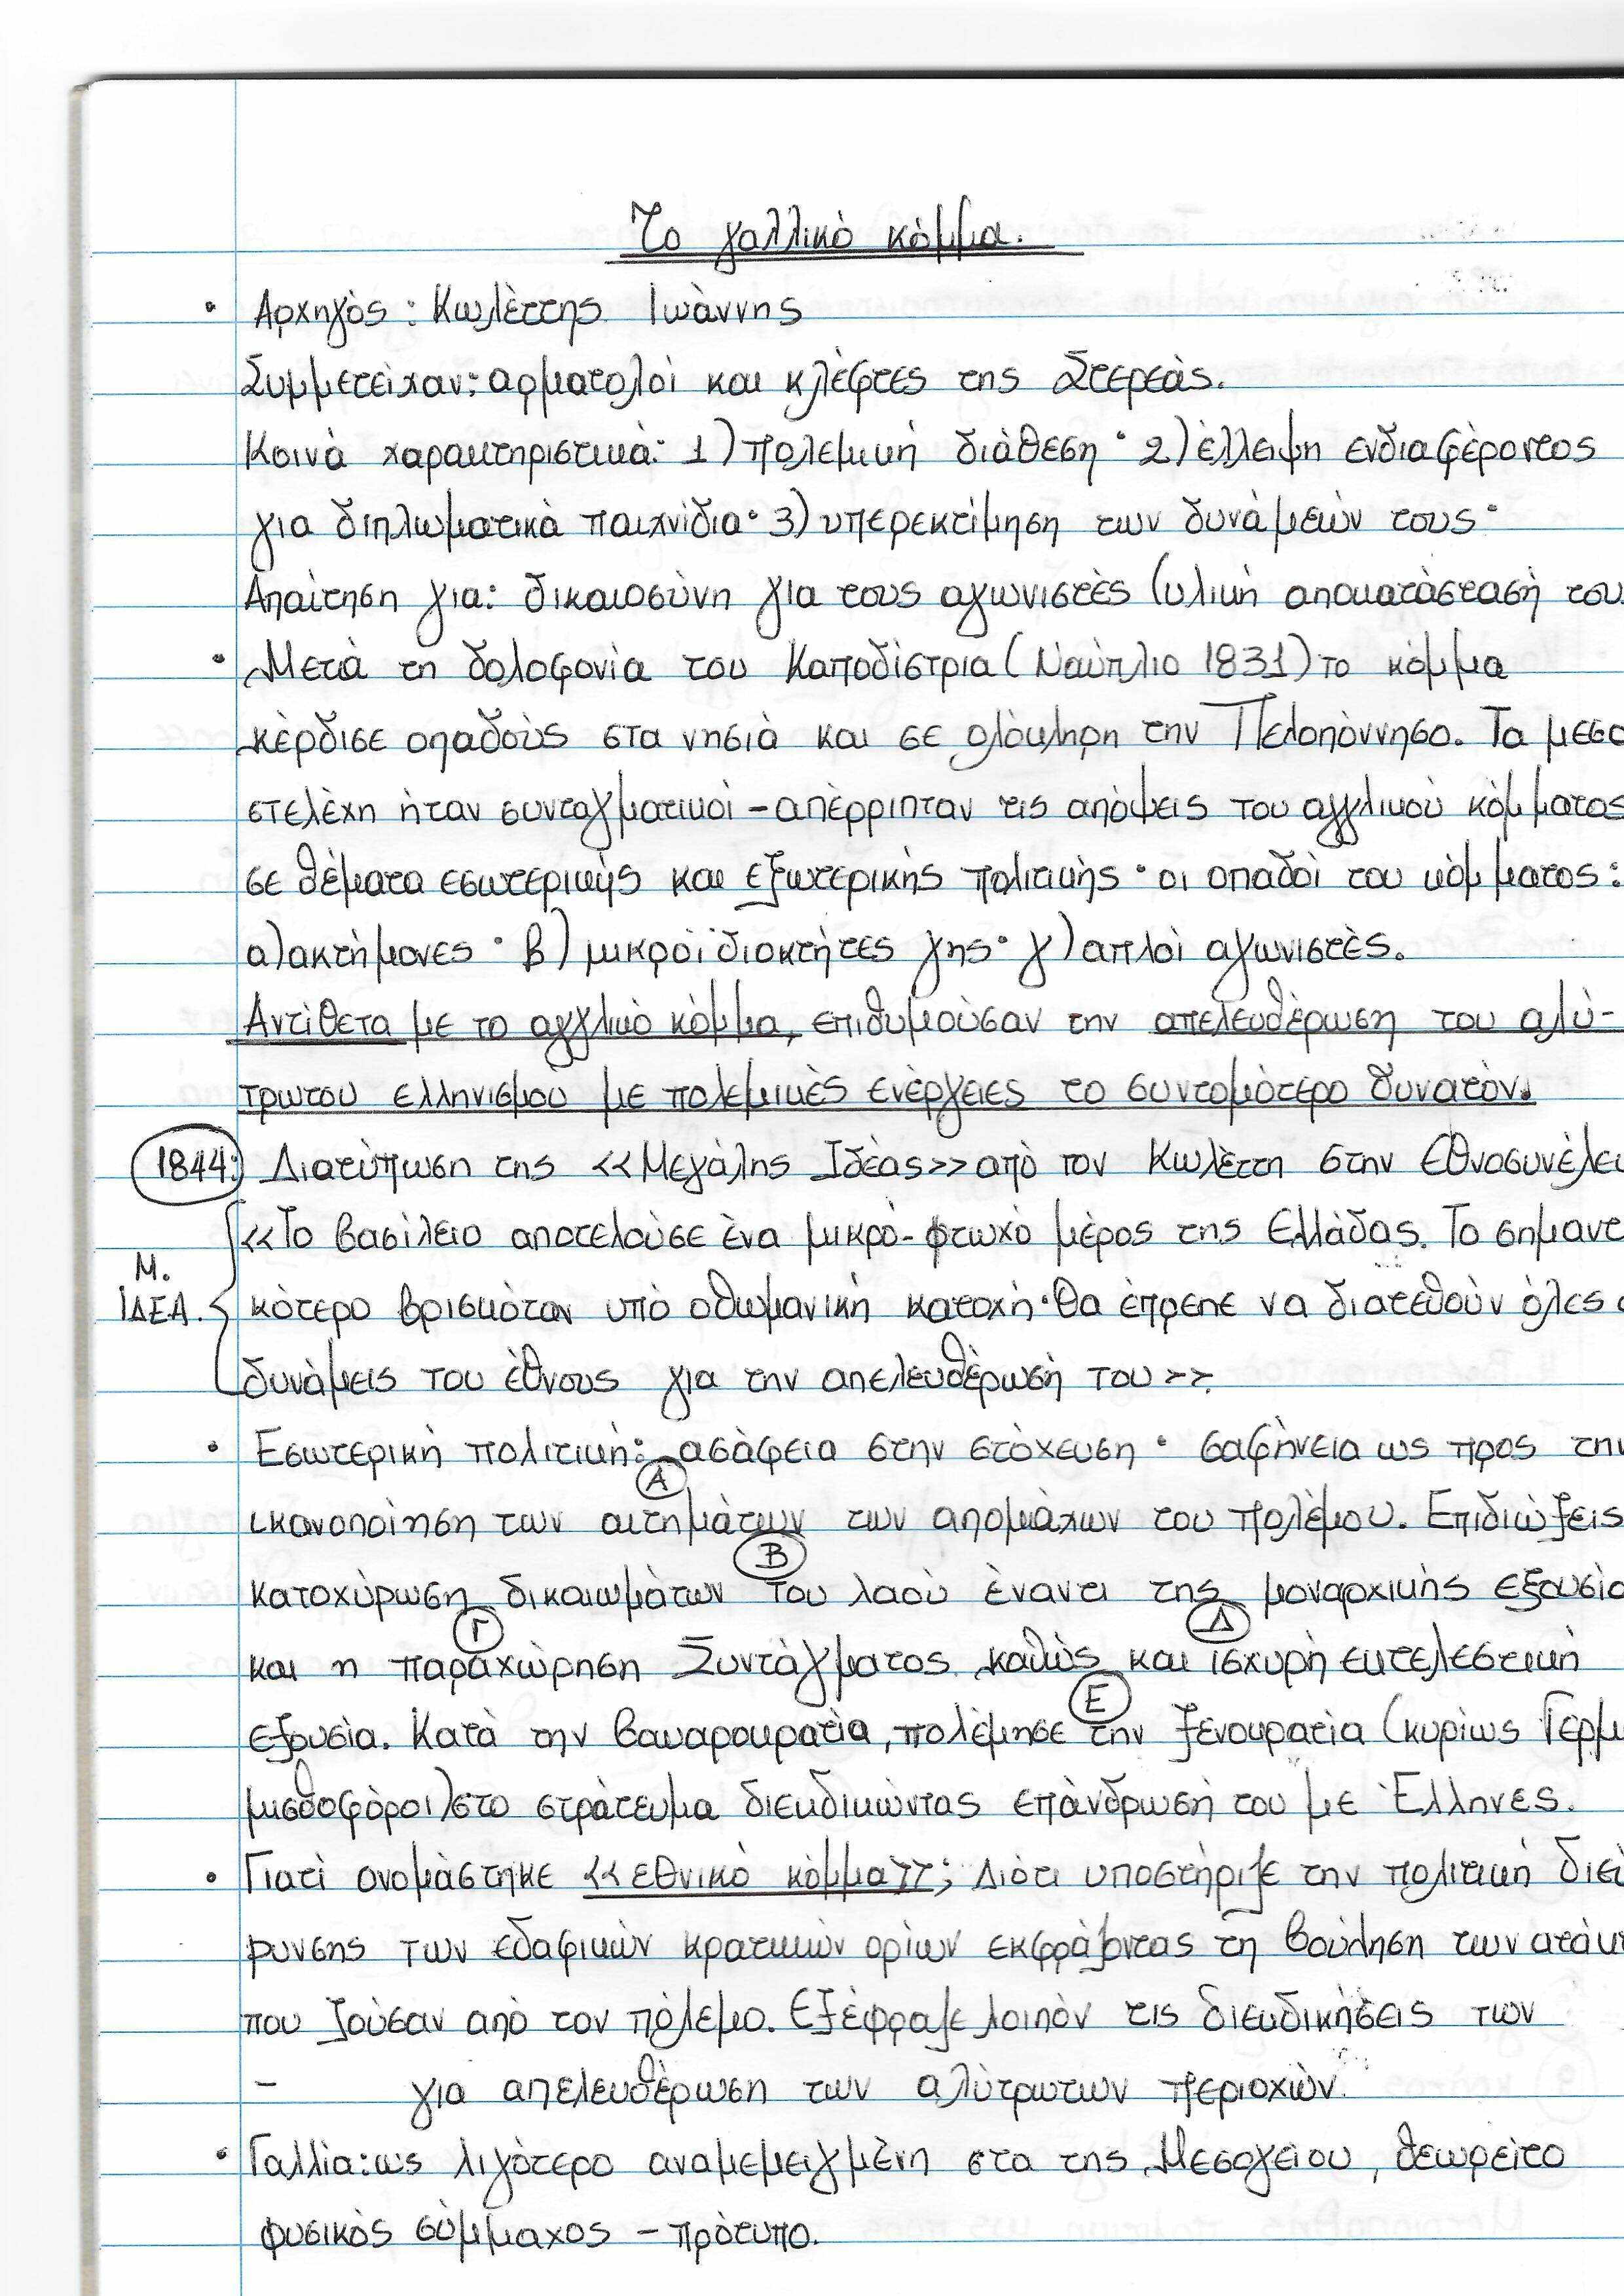 Το γαλλικό κόμμα.
• Αρχηγός: Κωλέττης Ιωάννης
Συμμετείχαν: αρματολοί και κλέφτες της Στερεάς.
Κοινά χαρακτηριστικά: 1) πολεμική διάθεση · 2) έλλειψη ενδιαφέροντος
για διπλωματικά παιχνίδια · 3) υπερεκτίμηση των δυνάμεών τους ·
Απαίτηση για: δικαιοσύνη για τους αγωνιστές (υλική αποκατάστασή του
• Μετά τη δολοφονία του Καποδίστρια (Ναύπλιο 1831) το κόμμα
κέρδισε οπαδούς στα νησιά και σε ολόκληρη την Πελοπόννησο. Τα μεσα
στελέχη ήταν συνταγματικοί – απέρριπταν τις απόψεις του αγγλικού κόμματος
σε θέματα εσωτερικής και εξωτερικής πολιτικής · οι οπαδοί του κόμματος:
α) ακτήμονες · β) μικροϊδιοκτήτες γης · γ) απλοί αγωνιστές.
Αντίθετα με το αγγλικό κόμμα, επιθυμούσαν την απελευθέρωση του αλύ-
τρωτου ελληνισμού με πολεμικές ενέργειες το συντομότερο δυνατόν.
1844: Διατύπωση της <<Μεγάλης Ιδέας>> από τον Κωλέττη στην Εθνοσυνέλευ
<<Το βασίλειο αποτελούσε ένα μικρό - φτωχό μέρος της Ελλάδας. Το σημαντ
Μ. ΙΔΕΑ. κότερο βρισκόταν υπό οθωμανική κατοχή · Θα έπρεπε να διατεθούν όλες ο
δυνάμεις του έθνους για την απελευθέρωσή του >>.
• Εσωτερική πολιτική: ασάφεια στην στόχευση · σαφήνεια ως προς την
Α
ικανοποίηση των αιτημάτων των απομάχων του πολέμου. Επιδιώξεις
Β
κατοχύρωση δικαιωμάτων του λαού έναντι της μοναρχικής εξουσία
Γ Δ
και η παραχώρηση Συντάγματος καθώς και ισχυρή εκτελεστική
Ε
εξουσία. Κατά την βαυαροκρατία, πολέμησε την ξενοκρατία (κυρίως Γερμ
μισθοφόροι) στο στράτευμα διεκδικώντας επάνδρωσή του με Έλληνες.
• Γιατί ονομάστηκε <<εθνικό κόμμα>>; Διότι υποστήριζε την πολιτική διεύ
ρυνσης των εδαφικών κρατικών ορίων εκφράζοντας τη βούληση των ατάκτ
που ζούσαν από τον πόλεμο. Εξέφραζε λοιπόν τις διεκδικήσεις των
– για απελευθέρωση των αλύτρωτων περιοχών.
• Γαλλία: ως λιγότερο αναμεμειγμένη στα της Μεσογείου, θεωρείτο
φυσικός σύμμαχος – πρότυπο.